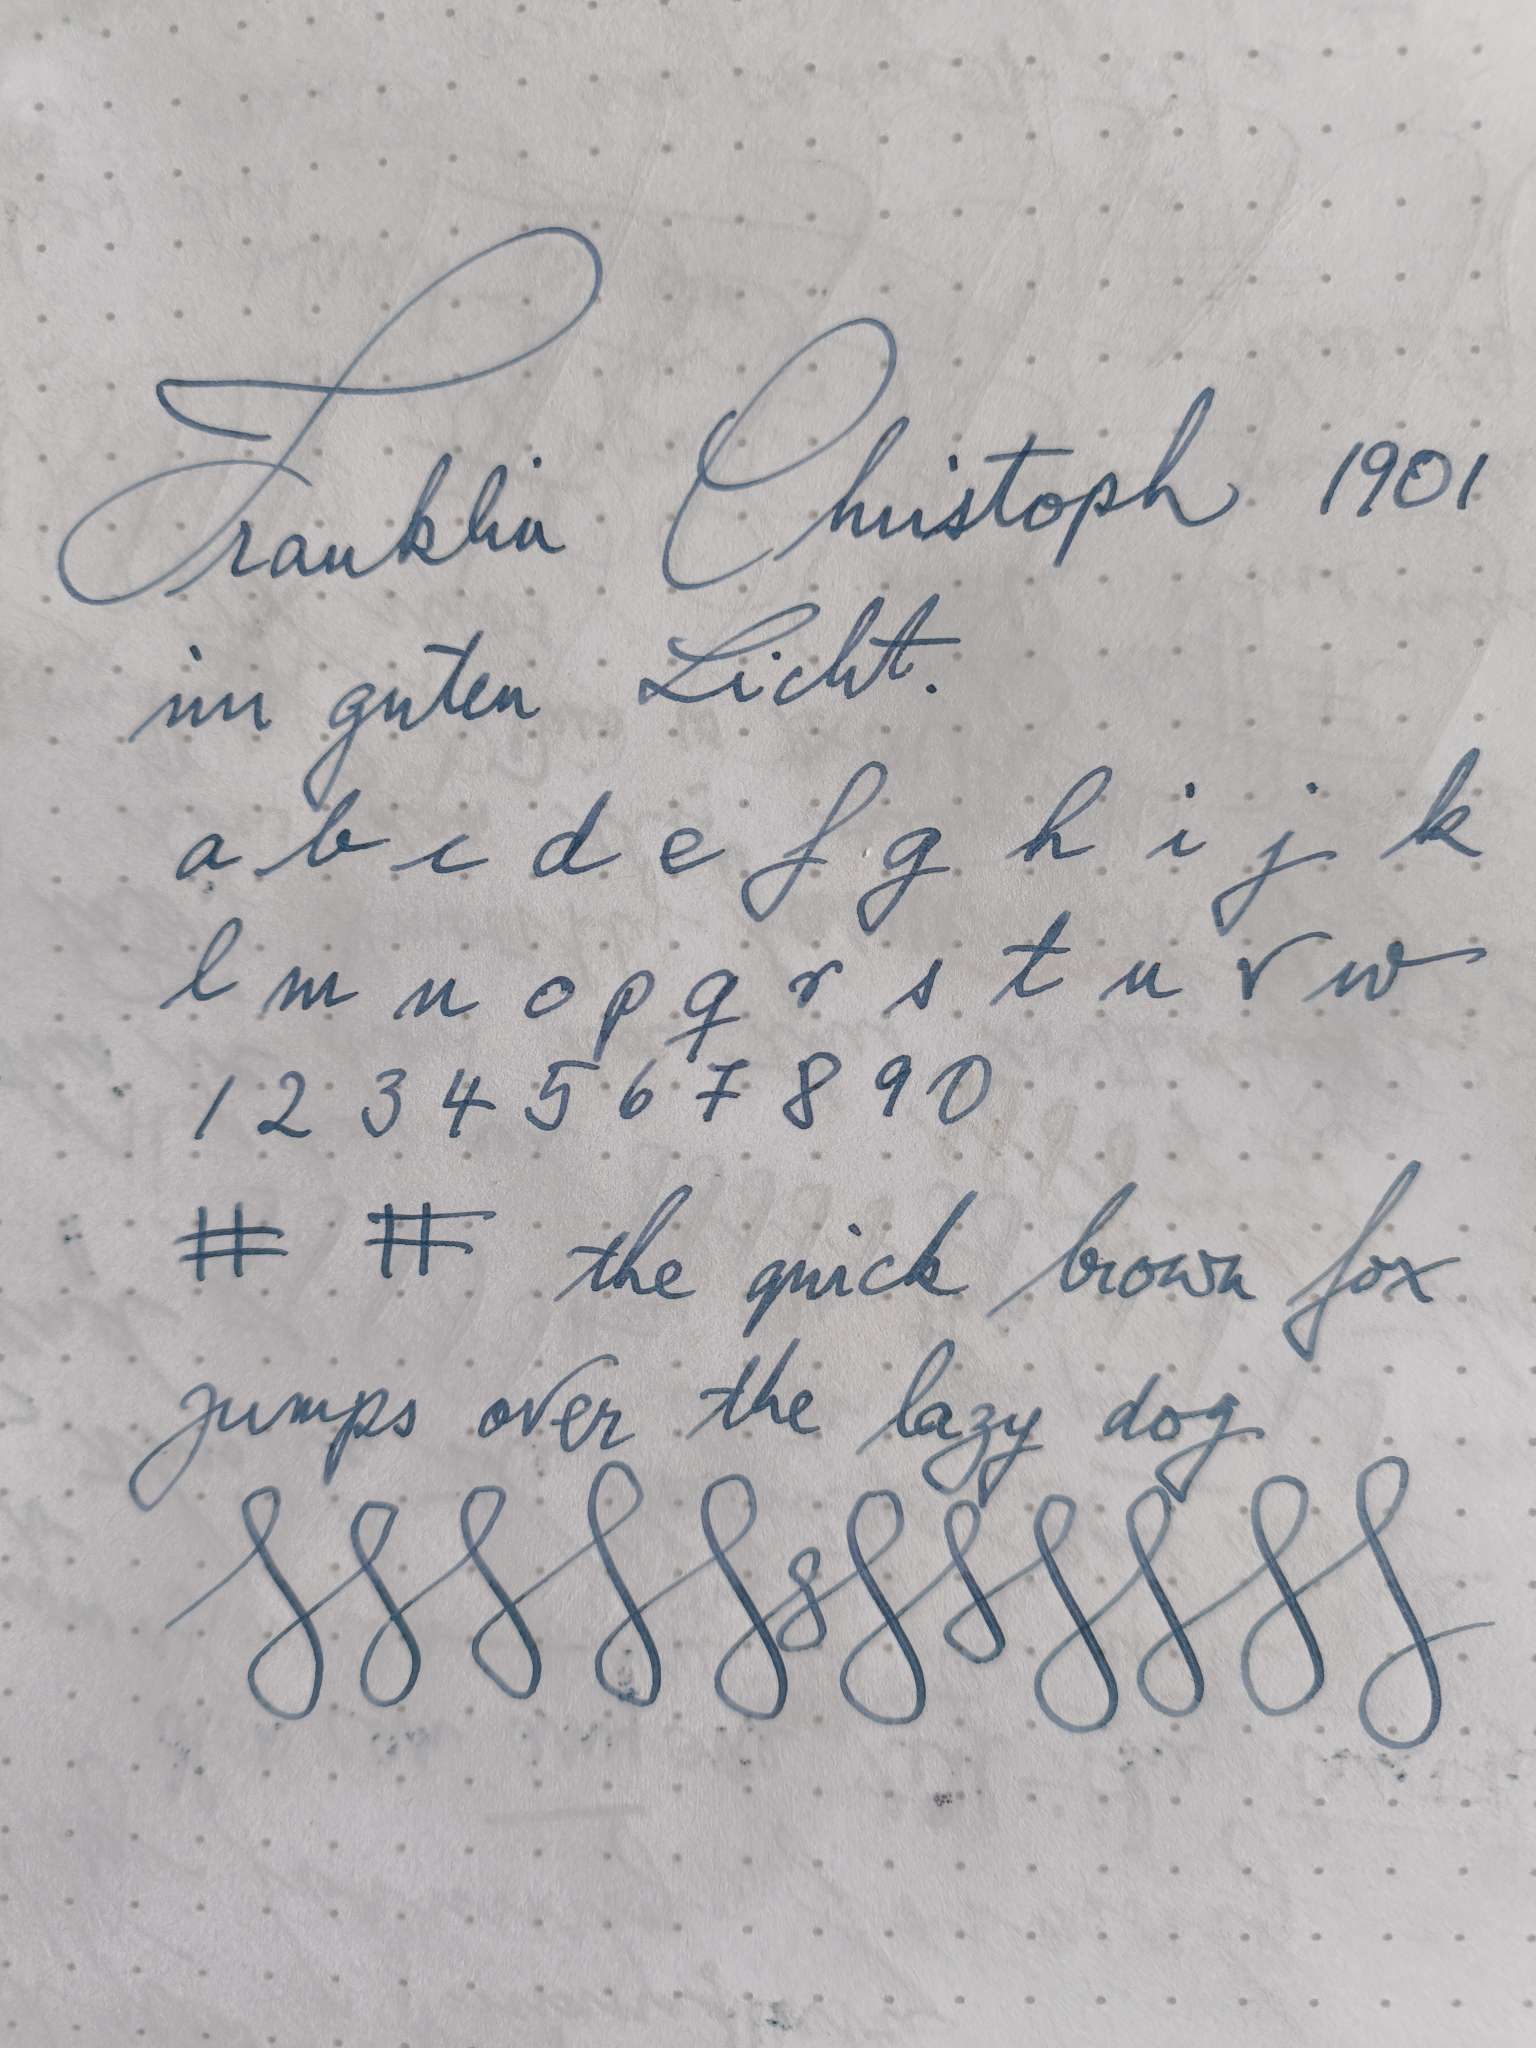 Franklin Christoph 1901
im guten Licht.
a b c d e f g h i j k
l m n o p q r s t u v w
1 2 3 4 5 6 7 8 9 0
# # the quick brown fox
jumps over the lazy dog